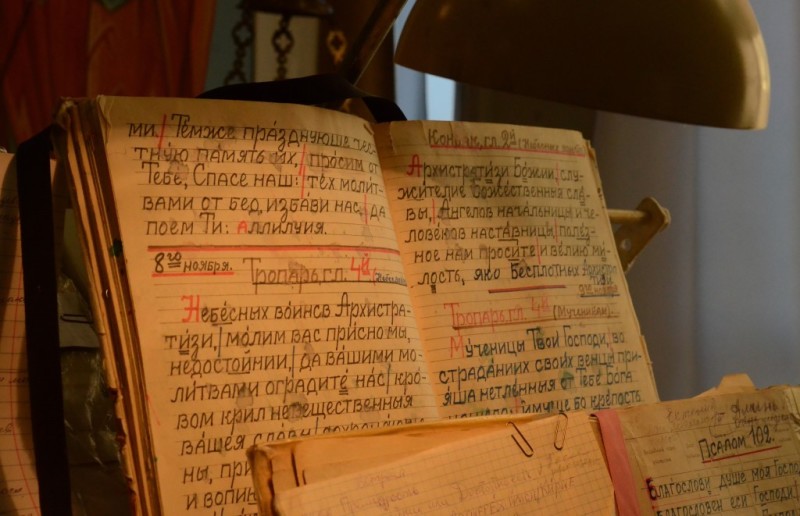 ми. Тѐмже прáзднующе чес-
тнýю пáмять их, прóсим от
Тебе, Спасе наш: тéх моли́т-
вами от бед избáви нас, да
поем Ти: аллилуиа.
8го ноября. Тропарь, гл. 4й
Небéсных вóинсв Архистра-
ти́зи, мóлим вас при́сно мы,
недостóйнии, да вáшими мо-
ли́твами огради́те нас крó-
вом крил невещéственныя
вáшея слáвы
ны, при
и вопи
Кондак, гл. 2й
Архистрати́зи Бóжии, слу-
жи́телие Божественныя слá-
вы, Áнгелов начáльницы и че-
ловéков настáвницы, полéз-
ное нам проси́те и вéлию ми́-
лость, яко Бесплотных Архистра-
тизи
Тропарь, гл. 4й (Мученикам)
Мýченицы Твои́ Гóсподи, во
страдáниих свои́х венцы́ при-
я́ша нетлéнныя от Тебé Бóга
имуще бо крéпость
Псалом 102.
Благослови́ душе моя́ Господ
Благословéн еси́ Гóсподи